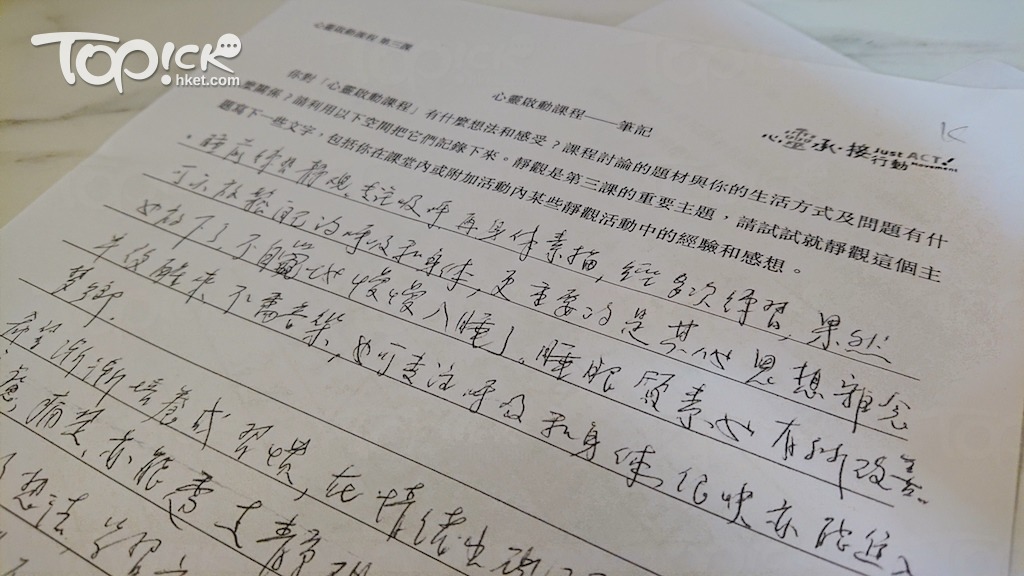 TOPick
hket.com
心靈啟動課程 第三課
心靈啟動課程——筆記
心靈承·接
Just ACT!
行動
你對「心靈啟動課程」有什麼想法和感受？課程討論的題材與你的生活方式及問題有什
麼關係？請利用以下空間把它們記錄下來。靜觀是第三課的重要主題，請試試就靜觀這個主
題寫下一些文字，包括你在課堂內或附加活動內某些靜觀活動中的經驗和感想。
睡前練習靜觀，專注吸呼再身體素描，經多次練習，果然
可以放鬆自己的呼吸和身体，更重要的是其他思想雜念
也放下了，不自覺地慢慢入睡了。睡眠質素也有所改善。
半夜醒來不需音樂，也可專注呼吸和身体，很快亦能進入
夢鄉。
漸漸培養成習慣，在情緒出現
痛楚，亦能
想法，